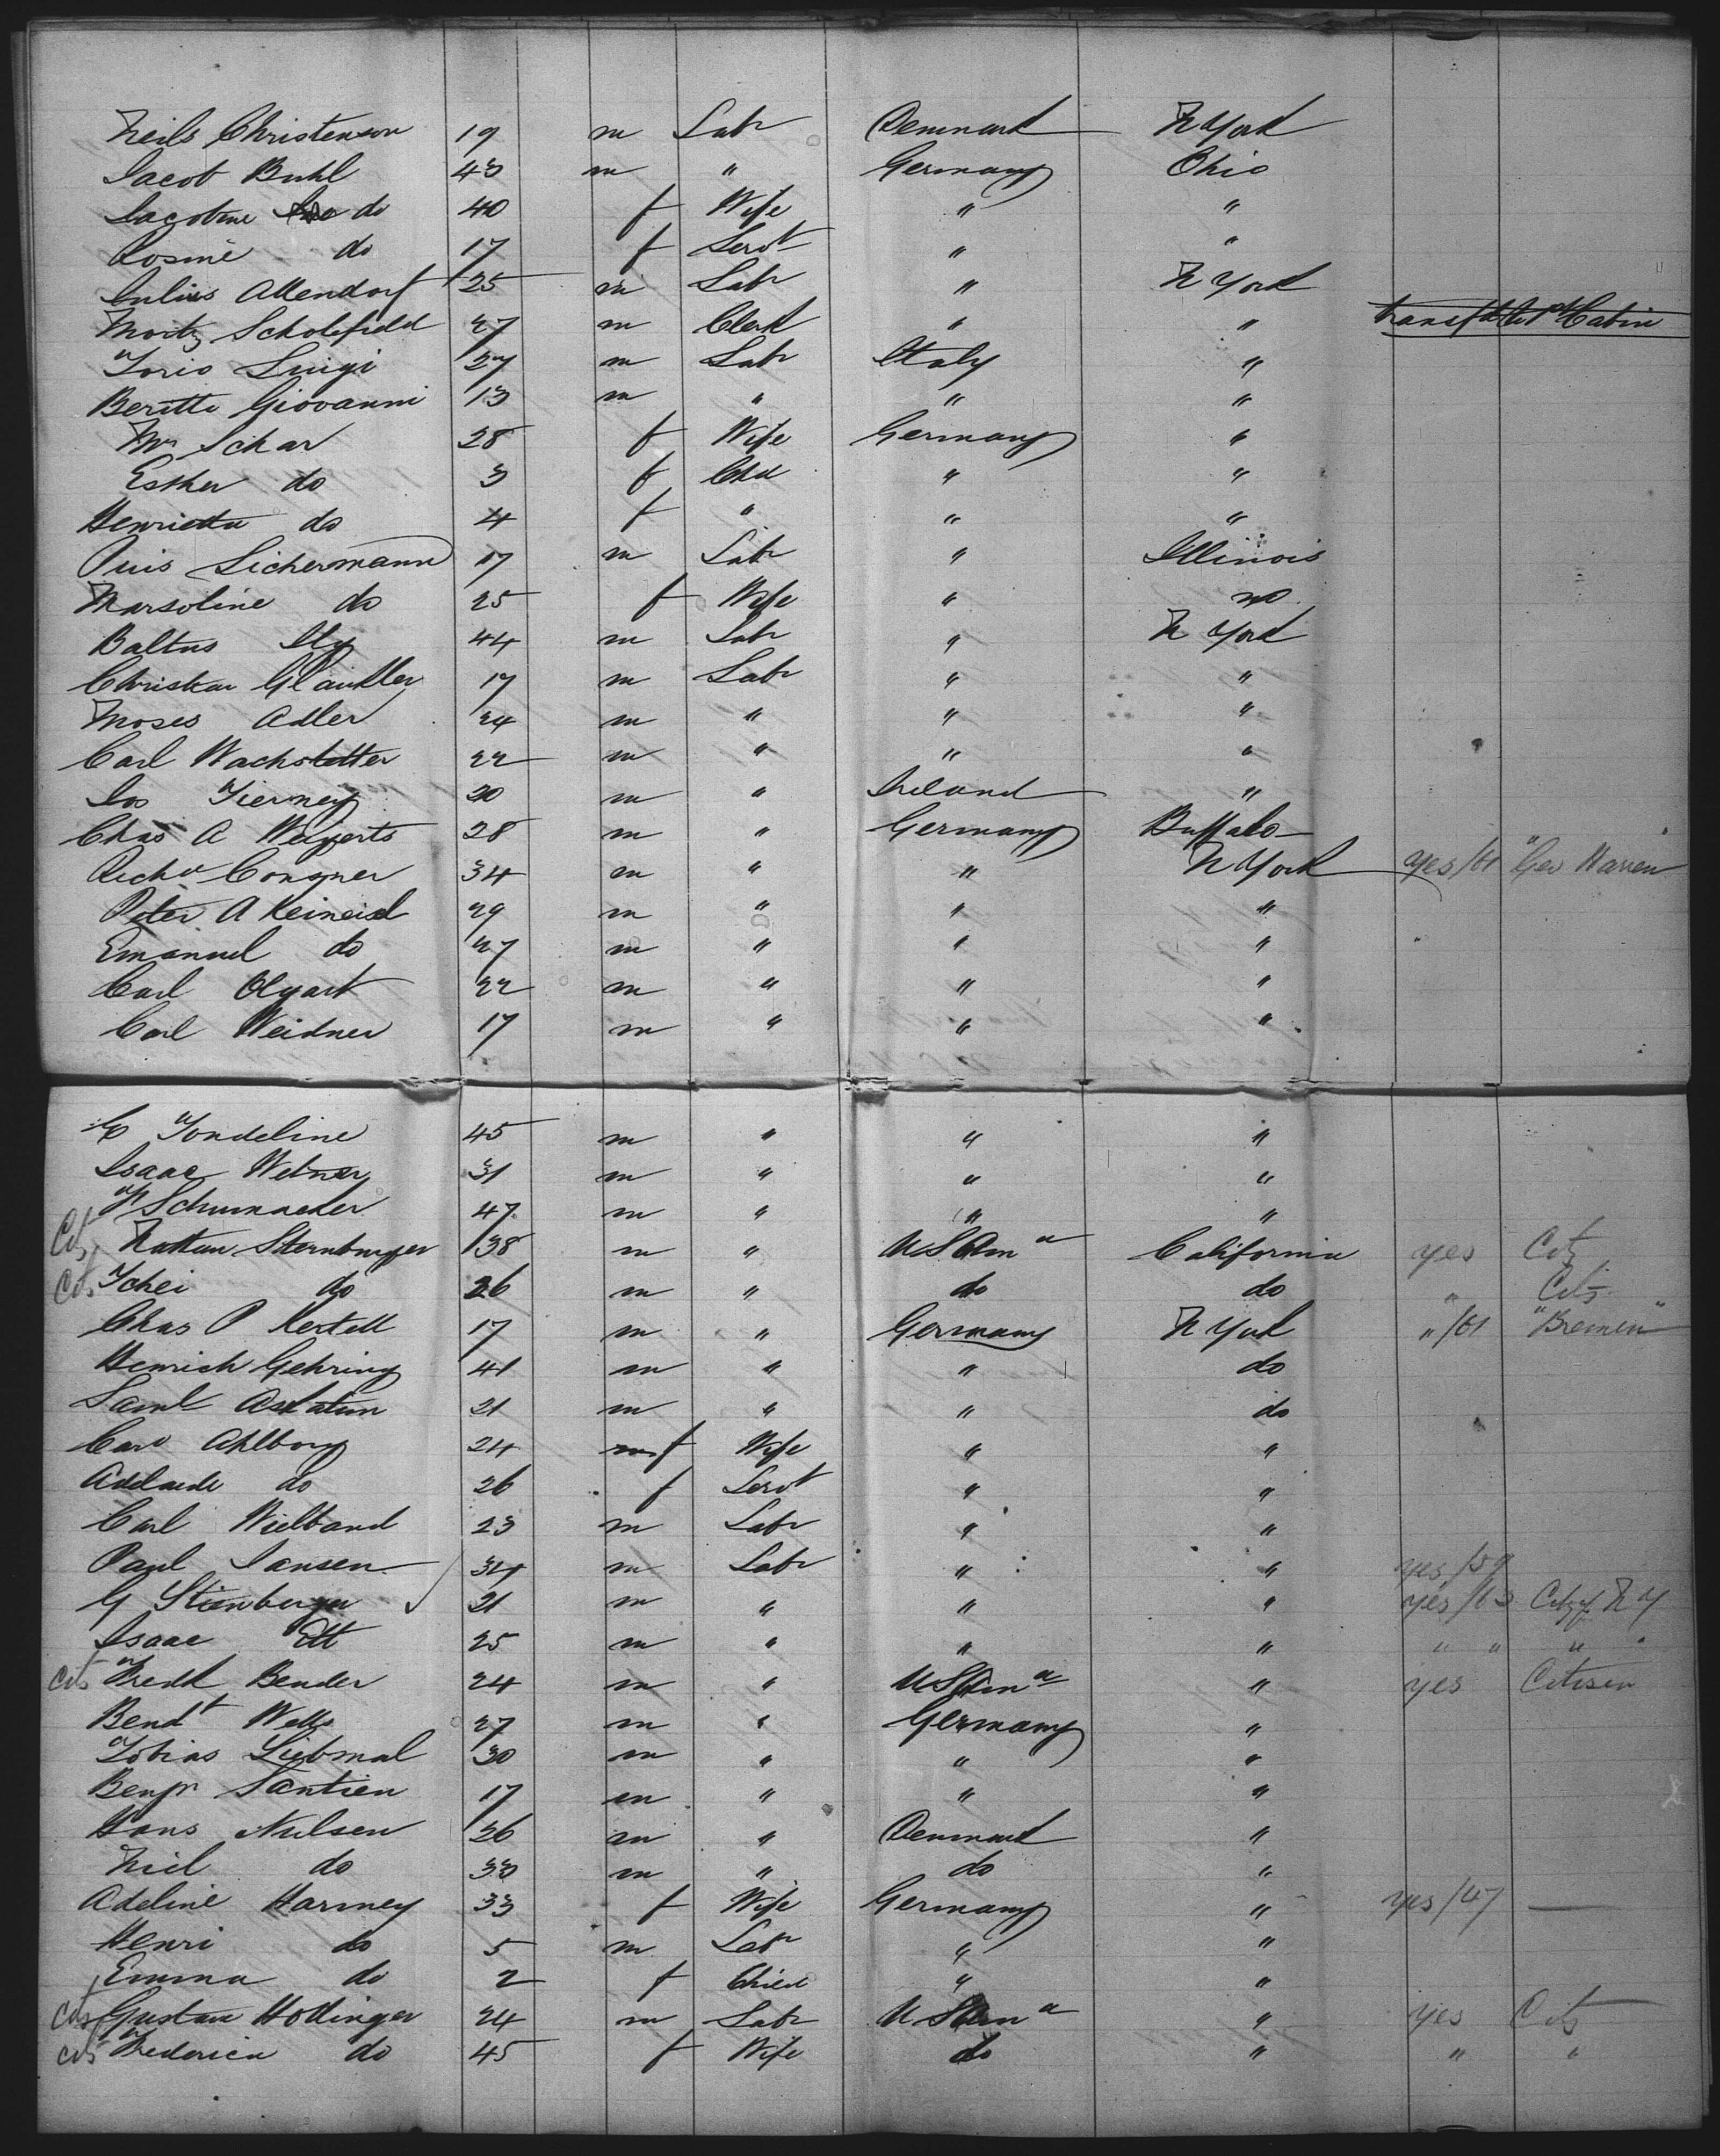 Neils Christenson 19 m Labr Denmark N York
Jacob Buhl 43 m " Germany Ohio
Jacobine do 40 f Wife " "
Rosine do 17 f Servt " "
Julius Allendorf 25 m Labr " N York
Moritz Scholefield 27 m Clerk " " transfd to Cabin
Torio Luigi 27 m Labr Italy "
Beritti Giovanni 13 m " " "
Mrs Schar 28 f Wife Germany "
Esther do 3 f Chd " "
Henrietta do 4 f " " "
Puis Lichermann 17 m Labr " Illinois
Marsoline do 25 f Wife "
Baltus 44 m Labr " N York
Christian 17 m Labr " "
Moses Adler 24 m " " "
Carl Wachstetter 22 m " " "
Jos Tierney 20 m " Ireland "
Chas A Weiperts 28 m " Germany Buffalo
Richd Congner 34 m " " N York yes/61 "Geo Warren"
Peter A Keineisel 29 m " " "
Emanuel do 27 m " " "
Carl Olgart 22 m " " "
Carl Weidner 17 m " " "
C Tondeline 45 m " " "
Isaac Webner 31 m " " "
Schumacher 47 m " " "
Cits Nathan Sternburger 38 m " U S Ama California yes Cits
Cits Ichei do 26 m " do do " Cits
Chas P Kertell 17 m " Germany N York "/61 "Bremen"
Henrich Gehring 41 m " " do
Saml Askatim 21 m " " do
Caro Ahlborg 24 f Wife " "
Adelaide do 26 f Servt " "
Carl Wielband 23 m Labr " "
Paul Jansen 34 m Labr " " yes/59
G Sternberger 21 m " " " yes/63 Citz of N Y
Isaac Ett 25 m " " " " " "
Cits Fredk Bender 24 m " U S Ama " yes Citisen
Bendt Wells 27 m " Germany "
Tobias Liebmal 30 m " " "
Benjn Santien 17 m " " "
Hans Nielsen 26 m " Denmark "
Niel do 33 m " do "
Adeline Harmey 33 f Wife Germany " yes/47 —
Henri do 5 m Labr " "
Emma do 2 f Child " "
Cits Gustave Hottinger 24 m Labr U S Ama " yes Cits
Cits Frederica do 45 f Wife do " " "